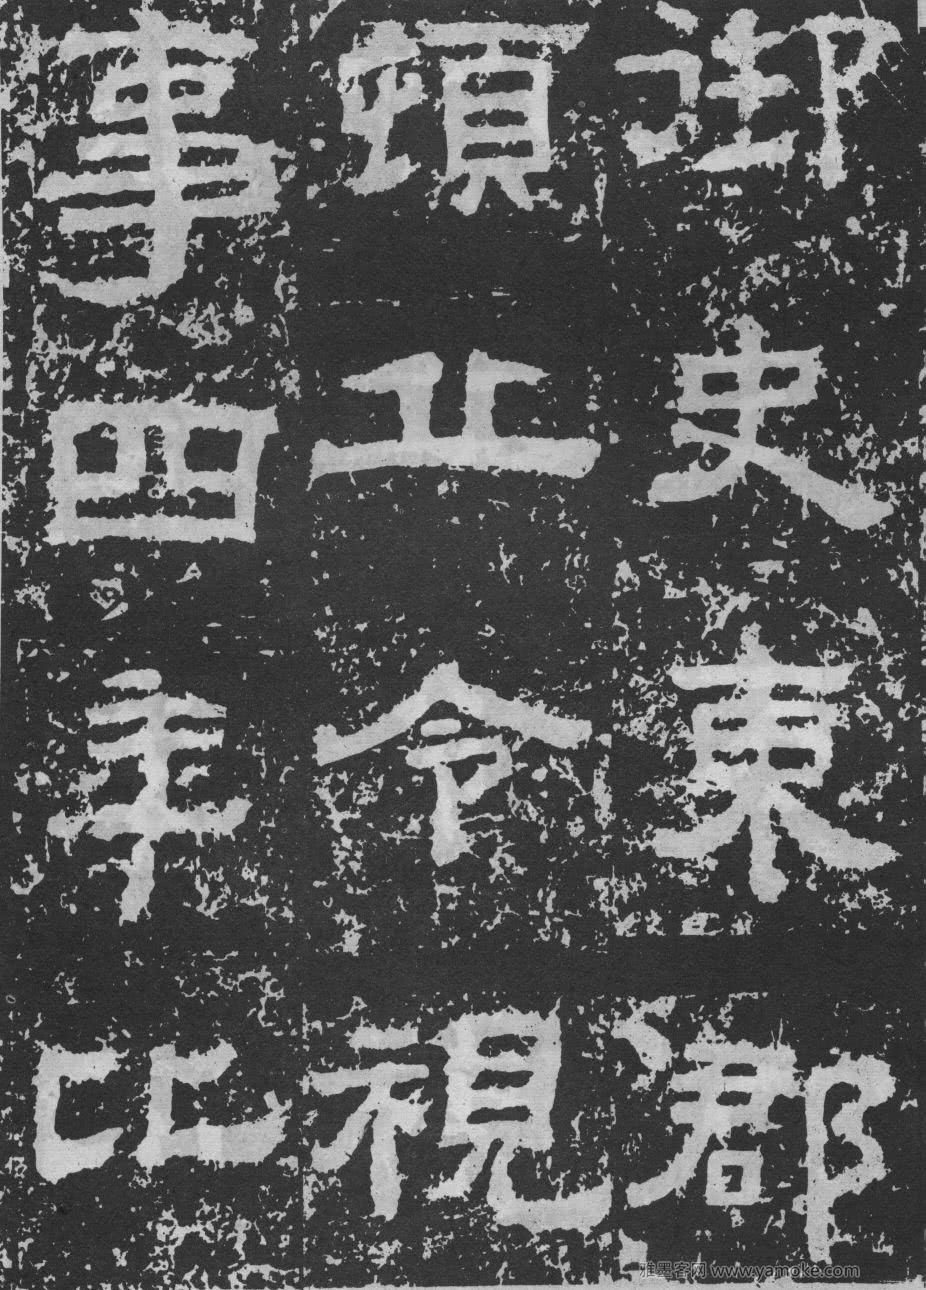 御史東郡
頓丘令視
事四年比
雅墨客网 www.yamoke.com